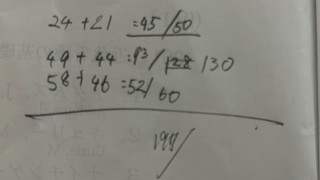 24 + 21 = 45/50
49 + 44 = 93/ 130
58 + 46 = 52/60
197/